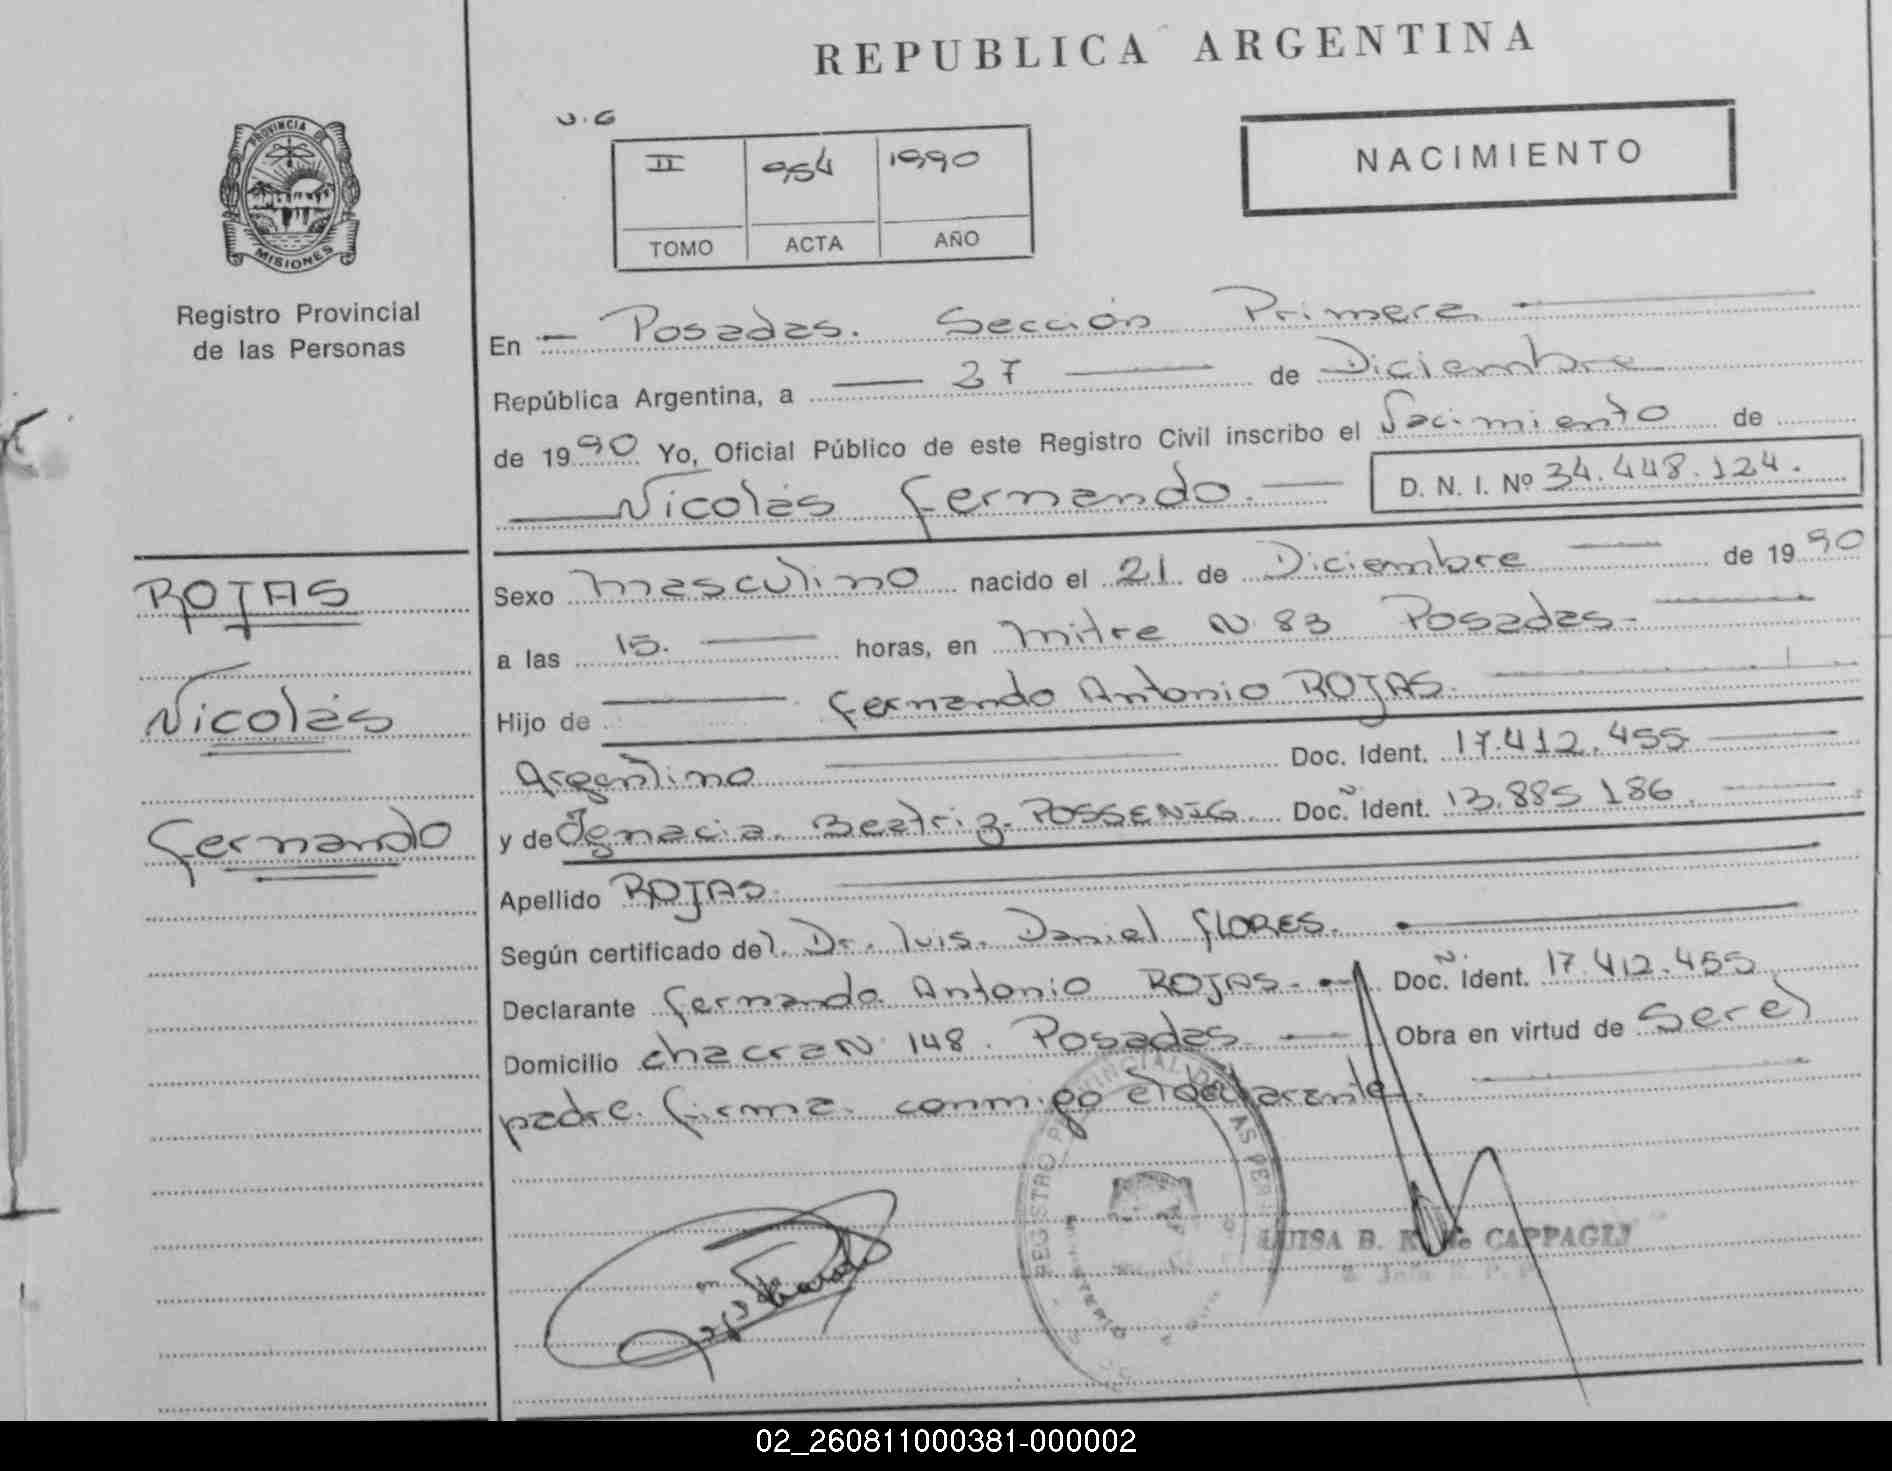 REPUBLICA ARGENTINA
PROVINCIA DE
MISIONES
Registro Provincial
de las Personas
II 954 1990
TOMO ACTA AÑO
NACIMIENTO
En Posadas. Sección Primera
República Argentina, a 27 de Diciembre
de 1990 Yo, Oficial Público de este Registro Civil inscribo el Nacimiento de
Nicolás Fernando. D. N. I. Nº 34.448.124.
ROJAS
Nicolás
Fernando
Sexo masculino nacido el 21 de Diciembre de 1990
a las 15. horas, en Mitre N 83 Posadas
Hijo de Fernando Antonio ROJAS.
Argentino Doc. Ident. 17.412.455
y de Ignacia Beatriz POSSENIG Doc. Ident. 13.885 186
Apellido ROJAS
Según certificado del Dr. Luis Daniel FLORES.
Declarante Fernando Antonio ROJAS Doc. Ident. 17.412.455
Domicilio chacra N 148. Posadas Obra en virtud de Ser el
padre. firma conmigo el declarante.
REGISTRO PROVINCIAL DE LAS PER
LUISA B. CAPPAGLI
02_260811000381-000002